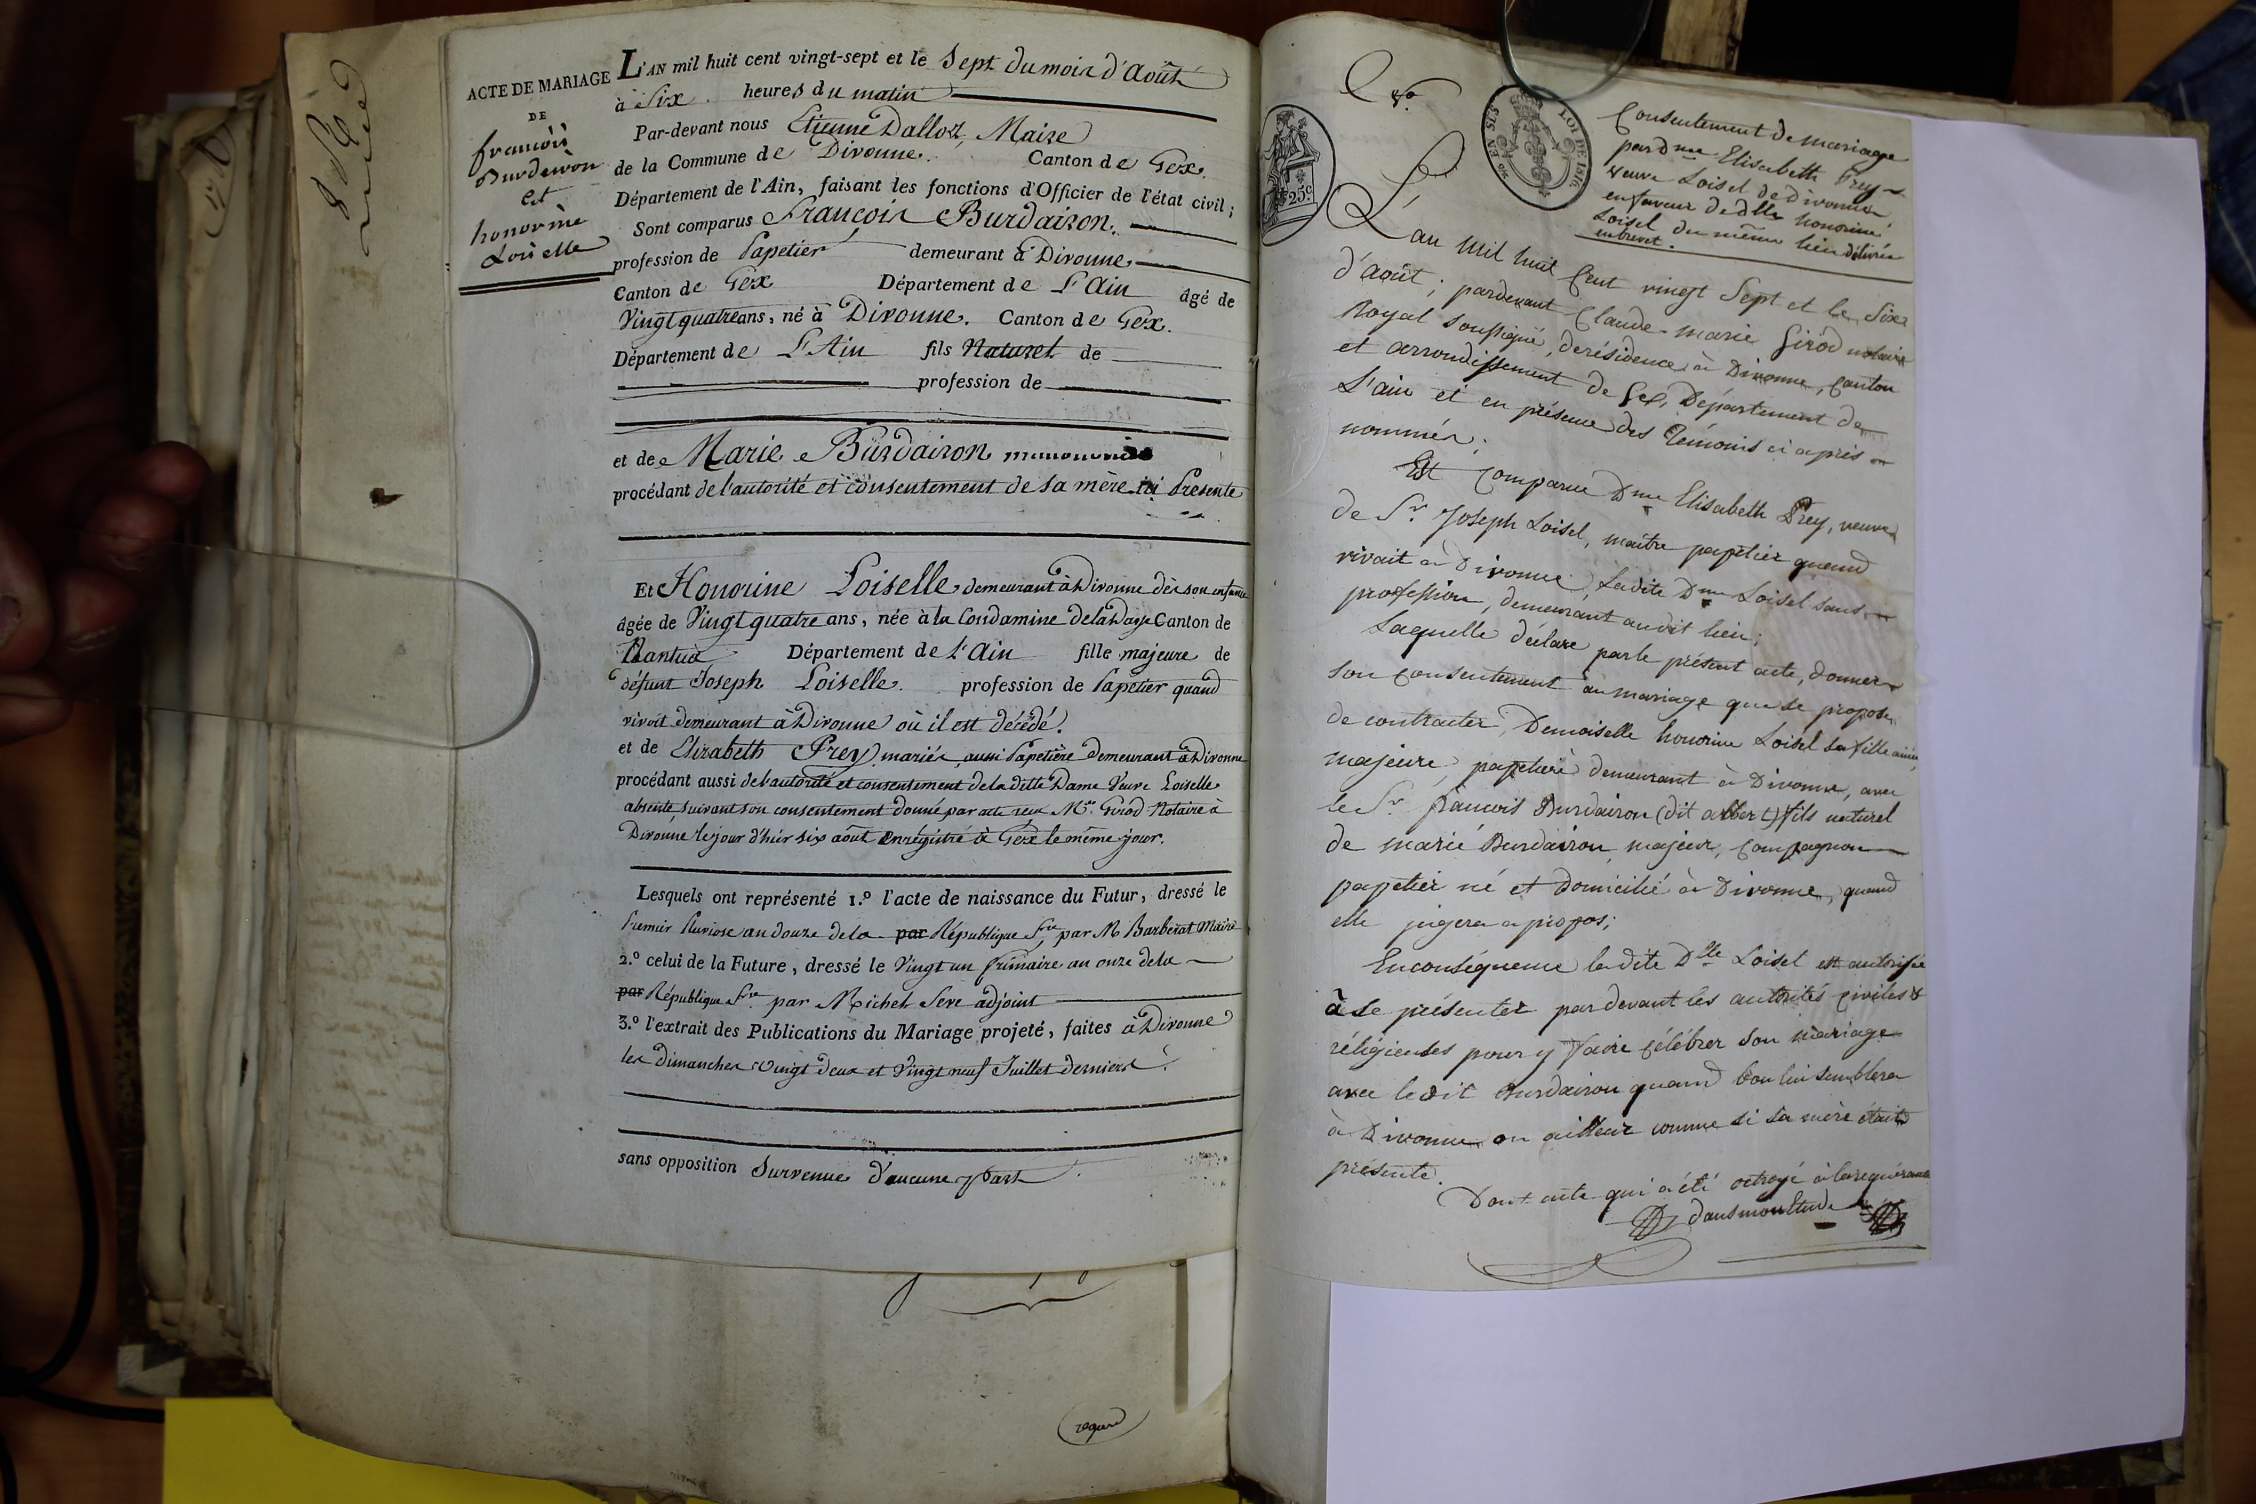 ACTE DE MARIAGE
DE
françois
Burdairon
et
honorine
Loiselle
L'AN mil huit cent vingt-sept et le Sept du mois d'Août
à Six heures du matin
Par-devant nous Etienne Dalloz, Maire
de la Commune de Divonne Canton de Gex.
Département de l'Ain, faisant les fonctions d'Officier de l'état civil;
Sont comparus François Burdairon.
profession de Papetier demeurant à Divonne,
Canton de Gex Département de L'Ain âgé de
Vingt quatre ans, né à Divonne. Canton de Gex.
Département de L'Ain fils Naturel de
profession de
et de Marie Burdairon
procédant de l'autorité et consentement de sa mère ici Présente
Et Honorine Loiselle demeurant à Divonne dès son enfance
âgée de Vingt quatre ans, née à la Condamine de la Doye Canton de
Nantua Département de l'Ain fille majeure de
défunt Joseph Loiselle. profession de Papetier quand
vivoit demeurant à Divonne où il est décédé.
et de Elizabeth Prey mariés, aussi Papetière demeurant à Divonne
procédant aussi de l'autorité et consentement de la ditte Dame Veuve Loiselle
absente, suivant son consentement donné par acte reçu Mre Girod Notaire à
Divonne le jour d'hier six août enregistré à Gex le même jour.
Lesquels ont représenté 1.º l'acte de naissance du Futur, dressé le
Premier Pluviose an douze de la par République Fse, par M Barberat Maire
2.º celui de la Future, dressé le Vingt un frimaire an onze de la
par République Fse par Michel Seve adjoint
3.º l'extrait des Publications du Mariage projeté, faites à Divonne
les dimanches Vingt deux et Vingt neuf Juillet derniers.
sans opposition Survenue d'aucune Part
25c
LOI DE 1816
Consentement de mariage
par Dme Elisabeth Prey
veuve Loisel de Divonne,
en faveur de dlle honorine
Loisel du même lieu délivré
en brevet.
L'an mil huit Cent vingt Sept et le Six
d'août; pardevant Claude-marie Girod notaire
Royal soussigné, de résidence à Divonne, Canton
et arrondissement de Gex, Département de
L'ain et en présence des témoins ci après
nommés.
Est Comparue Dme Elisabeth Prey, veuve
de Sr. Joseph Loisel, maitre papetier quand
vivait à Divonne, Ladite Dme Loisel sans
profession, demeurant audit lieu;
Laquelle déclare par le présent acte, donner
son consentement au mariage que se propose
de contracter, Demoiselle honorine Loisel sa fille ainée,
majeure, papetière demeurant à Divonne, avec
le Sr. françois Burdairon (dit albert) fils naturel
de marie Burdairon, majeur, Compagnon
papetier né et domicilié à Divonne, quand
elle jugera a propos;
En conséquence ladite Dlle Loisel est autorisée
à se présenter par devant les autorités civiles &
réligieuses pour y faire célébrer son mariage
avec ledit Burdairon quand bon lui semblera
à Divonne ou ailleur comme si sa mère était
présente.
Dont acte qui a été octroyé à la requérante